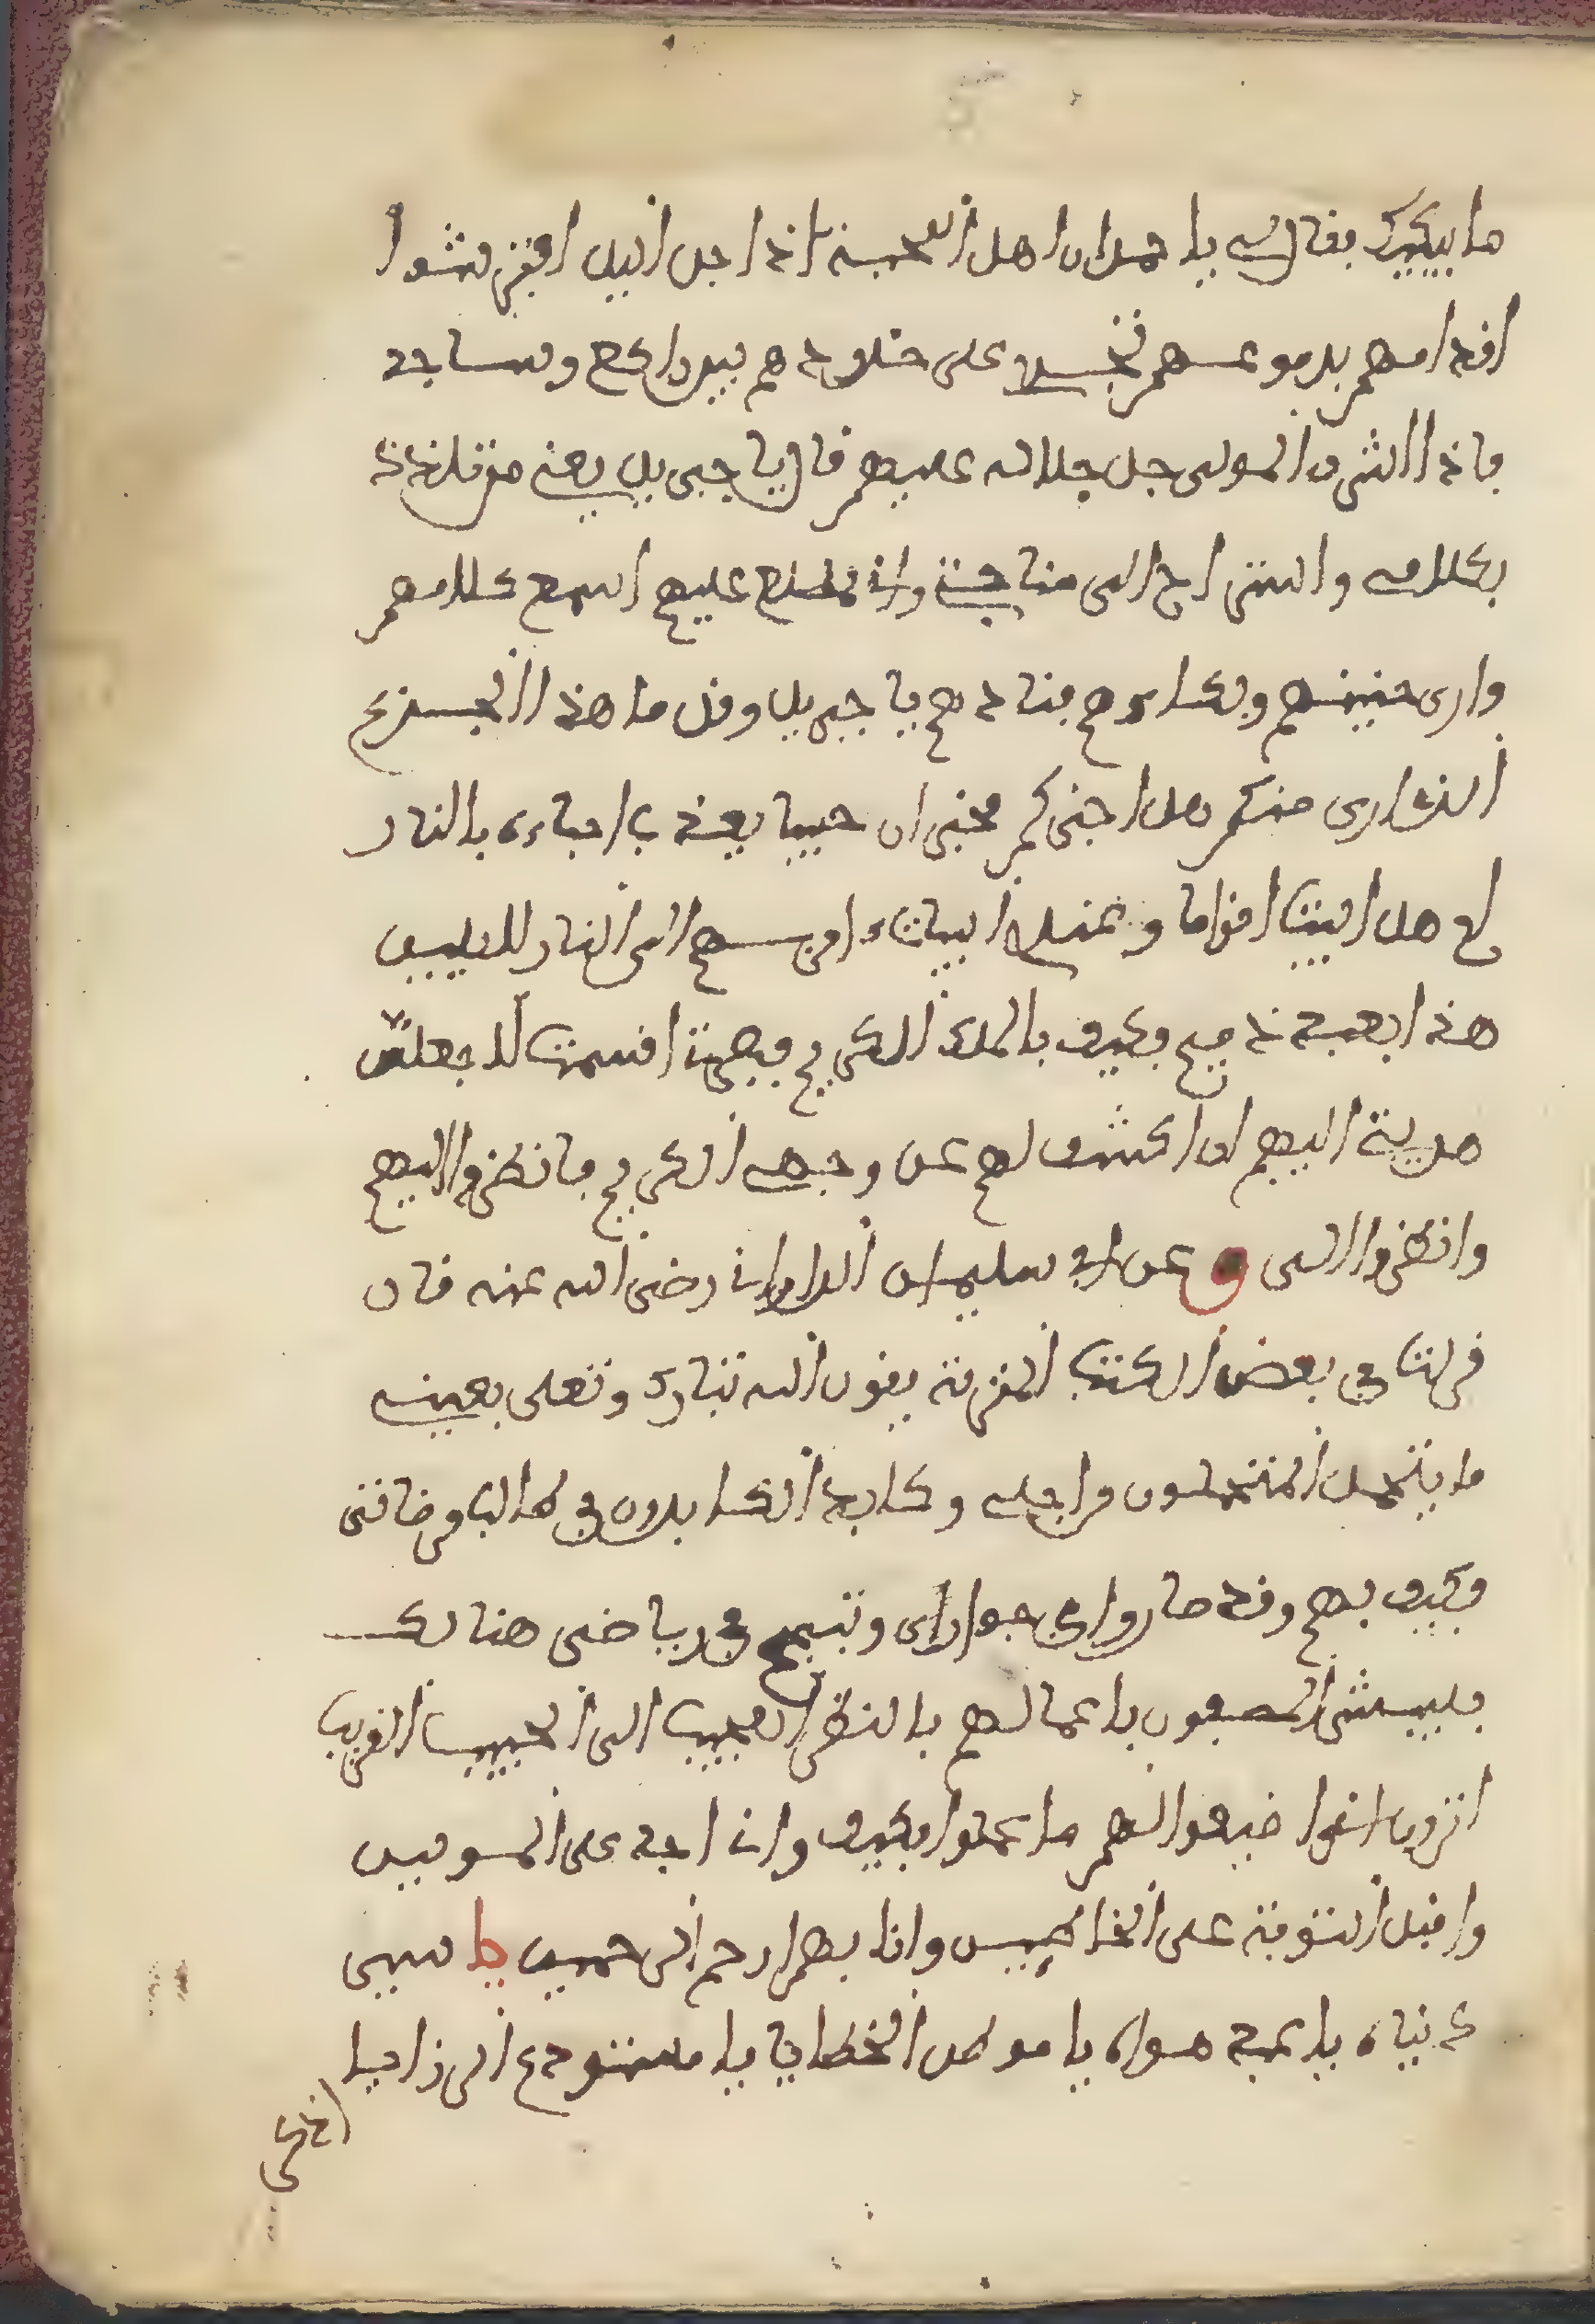 ما يبكيك فقال لي يا احمد ان اهل المحبة اذا جن اليل افترشوا
اقدامهم بدموعهم تجري على خدودهم بين راكع وساجد
فاذا اشرف المولى جل جلاله عليهم قال يا جبريل بعيني من تلذذ
بكلامي واستراح الى مناجاتي واني مطلع عليهم اسمع كلامهم
وارى حنينهم وبكاءهم فنادهم يا جبريل وقل ما هذا الجزع
الذي ارى منكم هل اخبركم مخبر ان حبيبا يعذب احباءه بالنار
ام هل ابيت اقواما وعند البيات امر بهم الى النار لا يليق
هذا بعبد ذميم فكيف بالملك الكريم فبعزتي اقسمت لاجعلن
هديتي اليهم ان اكشف لهم عن وجهي الكريم فانظر اليهم
وانظروا الي وعن ابي سليمان الداراني رضي الله عنه قال
قرات في بعض الكتب المنزلة يقول الله تبارك وتعلى بعيني
ما يتحمل المتحملون من اجلي وكابد المكابدون في طلب مرضاتي
فكيف بهم وقد صاروا في جواري وتبحبحوا في رياضي هنالك
فليبشر المصفون باعمالهم بالنظر العجيب الى الحبيب القريب
اترون اني اضيع لهم ما عملوا فكيف وانا اجود على المولين
واقبل التوبة على الخاطيين وانا بهم ارحم الراحمين يا اسير
دنياه يا عبد هواه يا موطن الخطايا يا مستودع الرزايا
اذكر